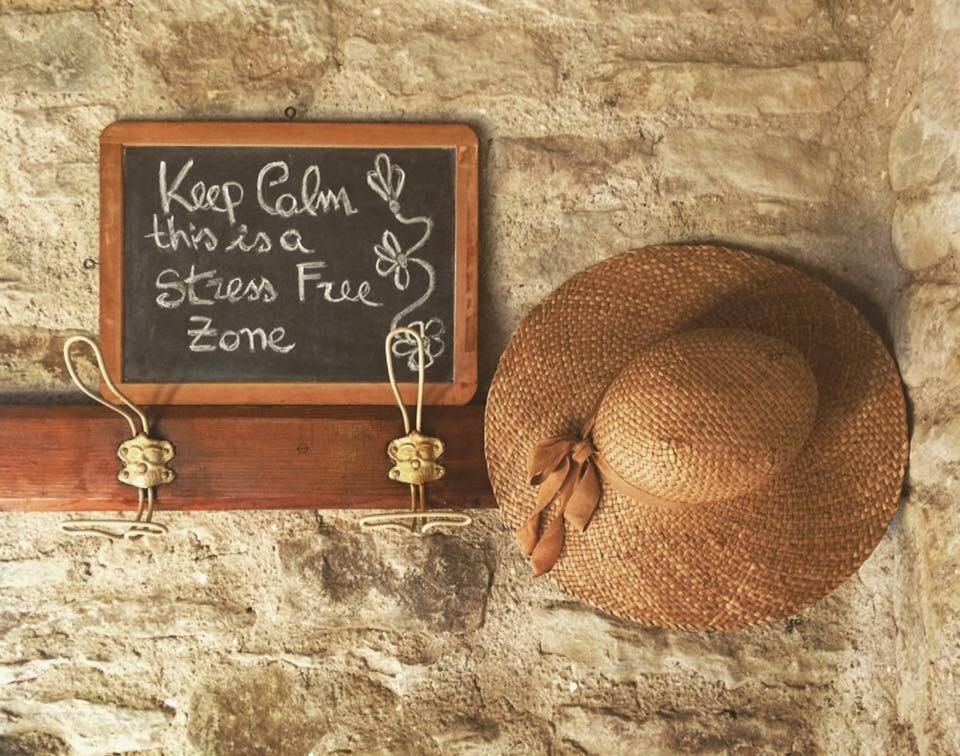 Keep Calm
this is a
Stress Free
Zone